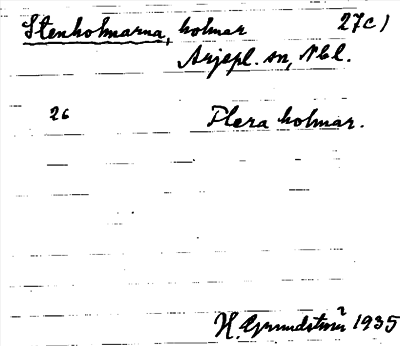 Stenholmarna, holmar 27c)
Arjepl. sn, Nbl.
26 Flera holmar.
H. Grundström 1935